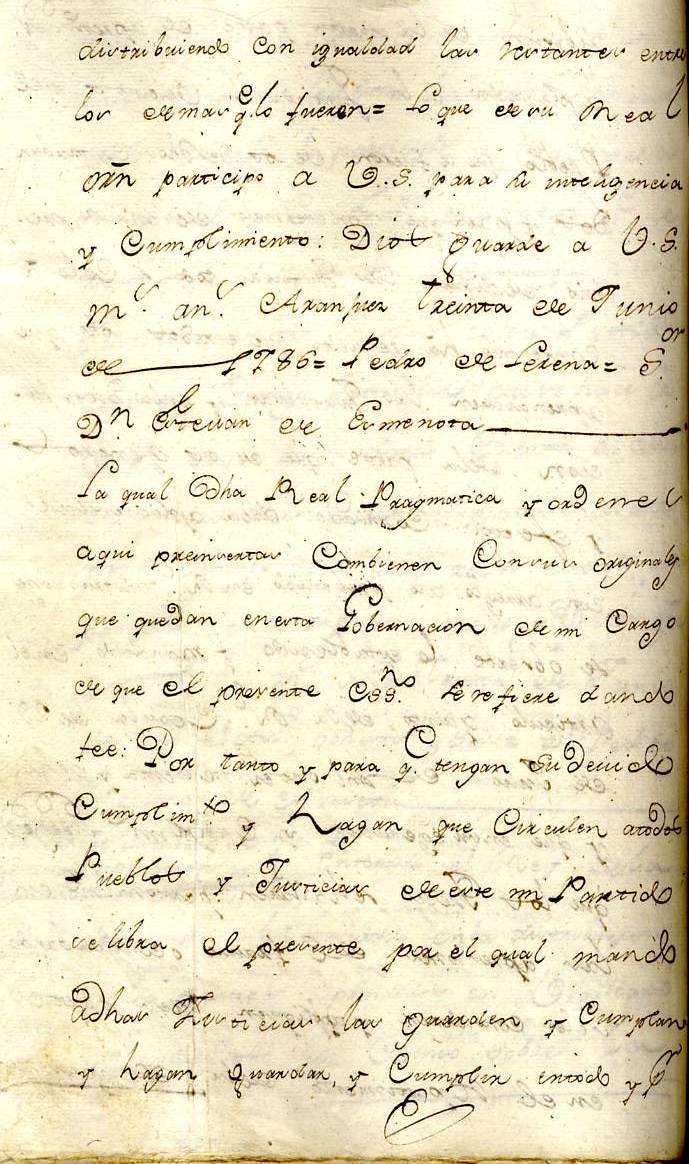 distribuiendo con igualdad las restantes entre
los demas q.e lo fueren = Lo que de su Real
orn participo a V.S. para su inteligencia
y Cumplimiento: Dios guarde a V.S.
m.s an.s Aranjuez treinta de Junio
de 1786 = Pedro de Lerena = S.or
D.n Estevan de Esmenota
La qual Dha Real Pragmatica y ordenes
aqui preinsertas Combienen Consus originales
que quedan enesta Gobernacion demi Cargo
de que el presente Ess.no se refiere dando
fee: Por tanto y para q. tengan su Devido
Cumplim.to y Hagan que Circulen atodos
Pueblos y Justicias de este mi Partido
se libra el presente por el qual mando
adhas Justicias las guarden y Cumplan
y hagan guardar, y Cumplir entodo y p.r